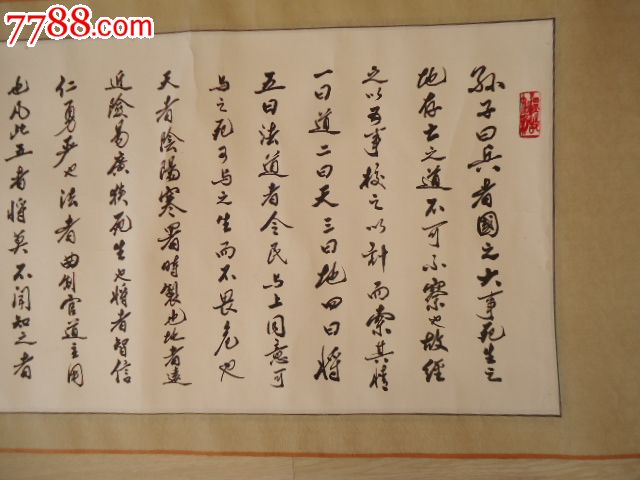 7788.com
孫子曰兵者國之大事死生之
地存亡之道不可不察也故經
之以五事校之以計而索其情
一曰道二曰天三曰地四曰將
五曰法道者令民与上同意可
与之死可与之生而不畏危也
天者陰陽寒暑時製也地者遠
近險易廣狹死生也將者智信
仁勇嚴也法者曲制官道主用
也凡此五者將莫不聞知之者